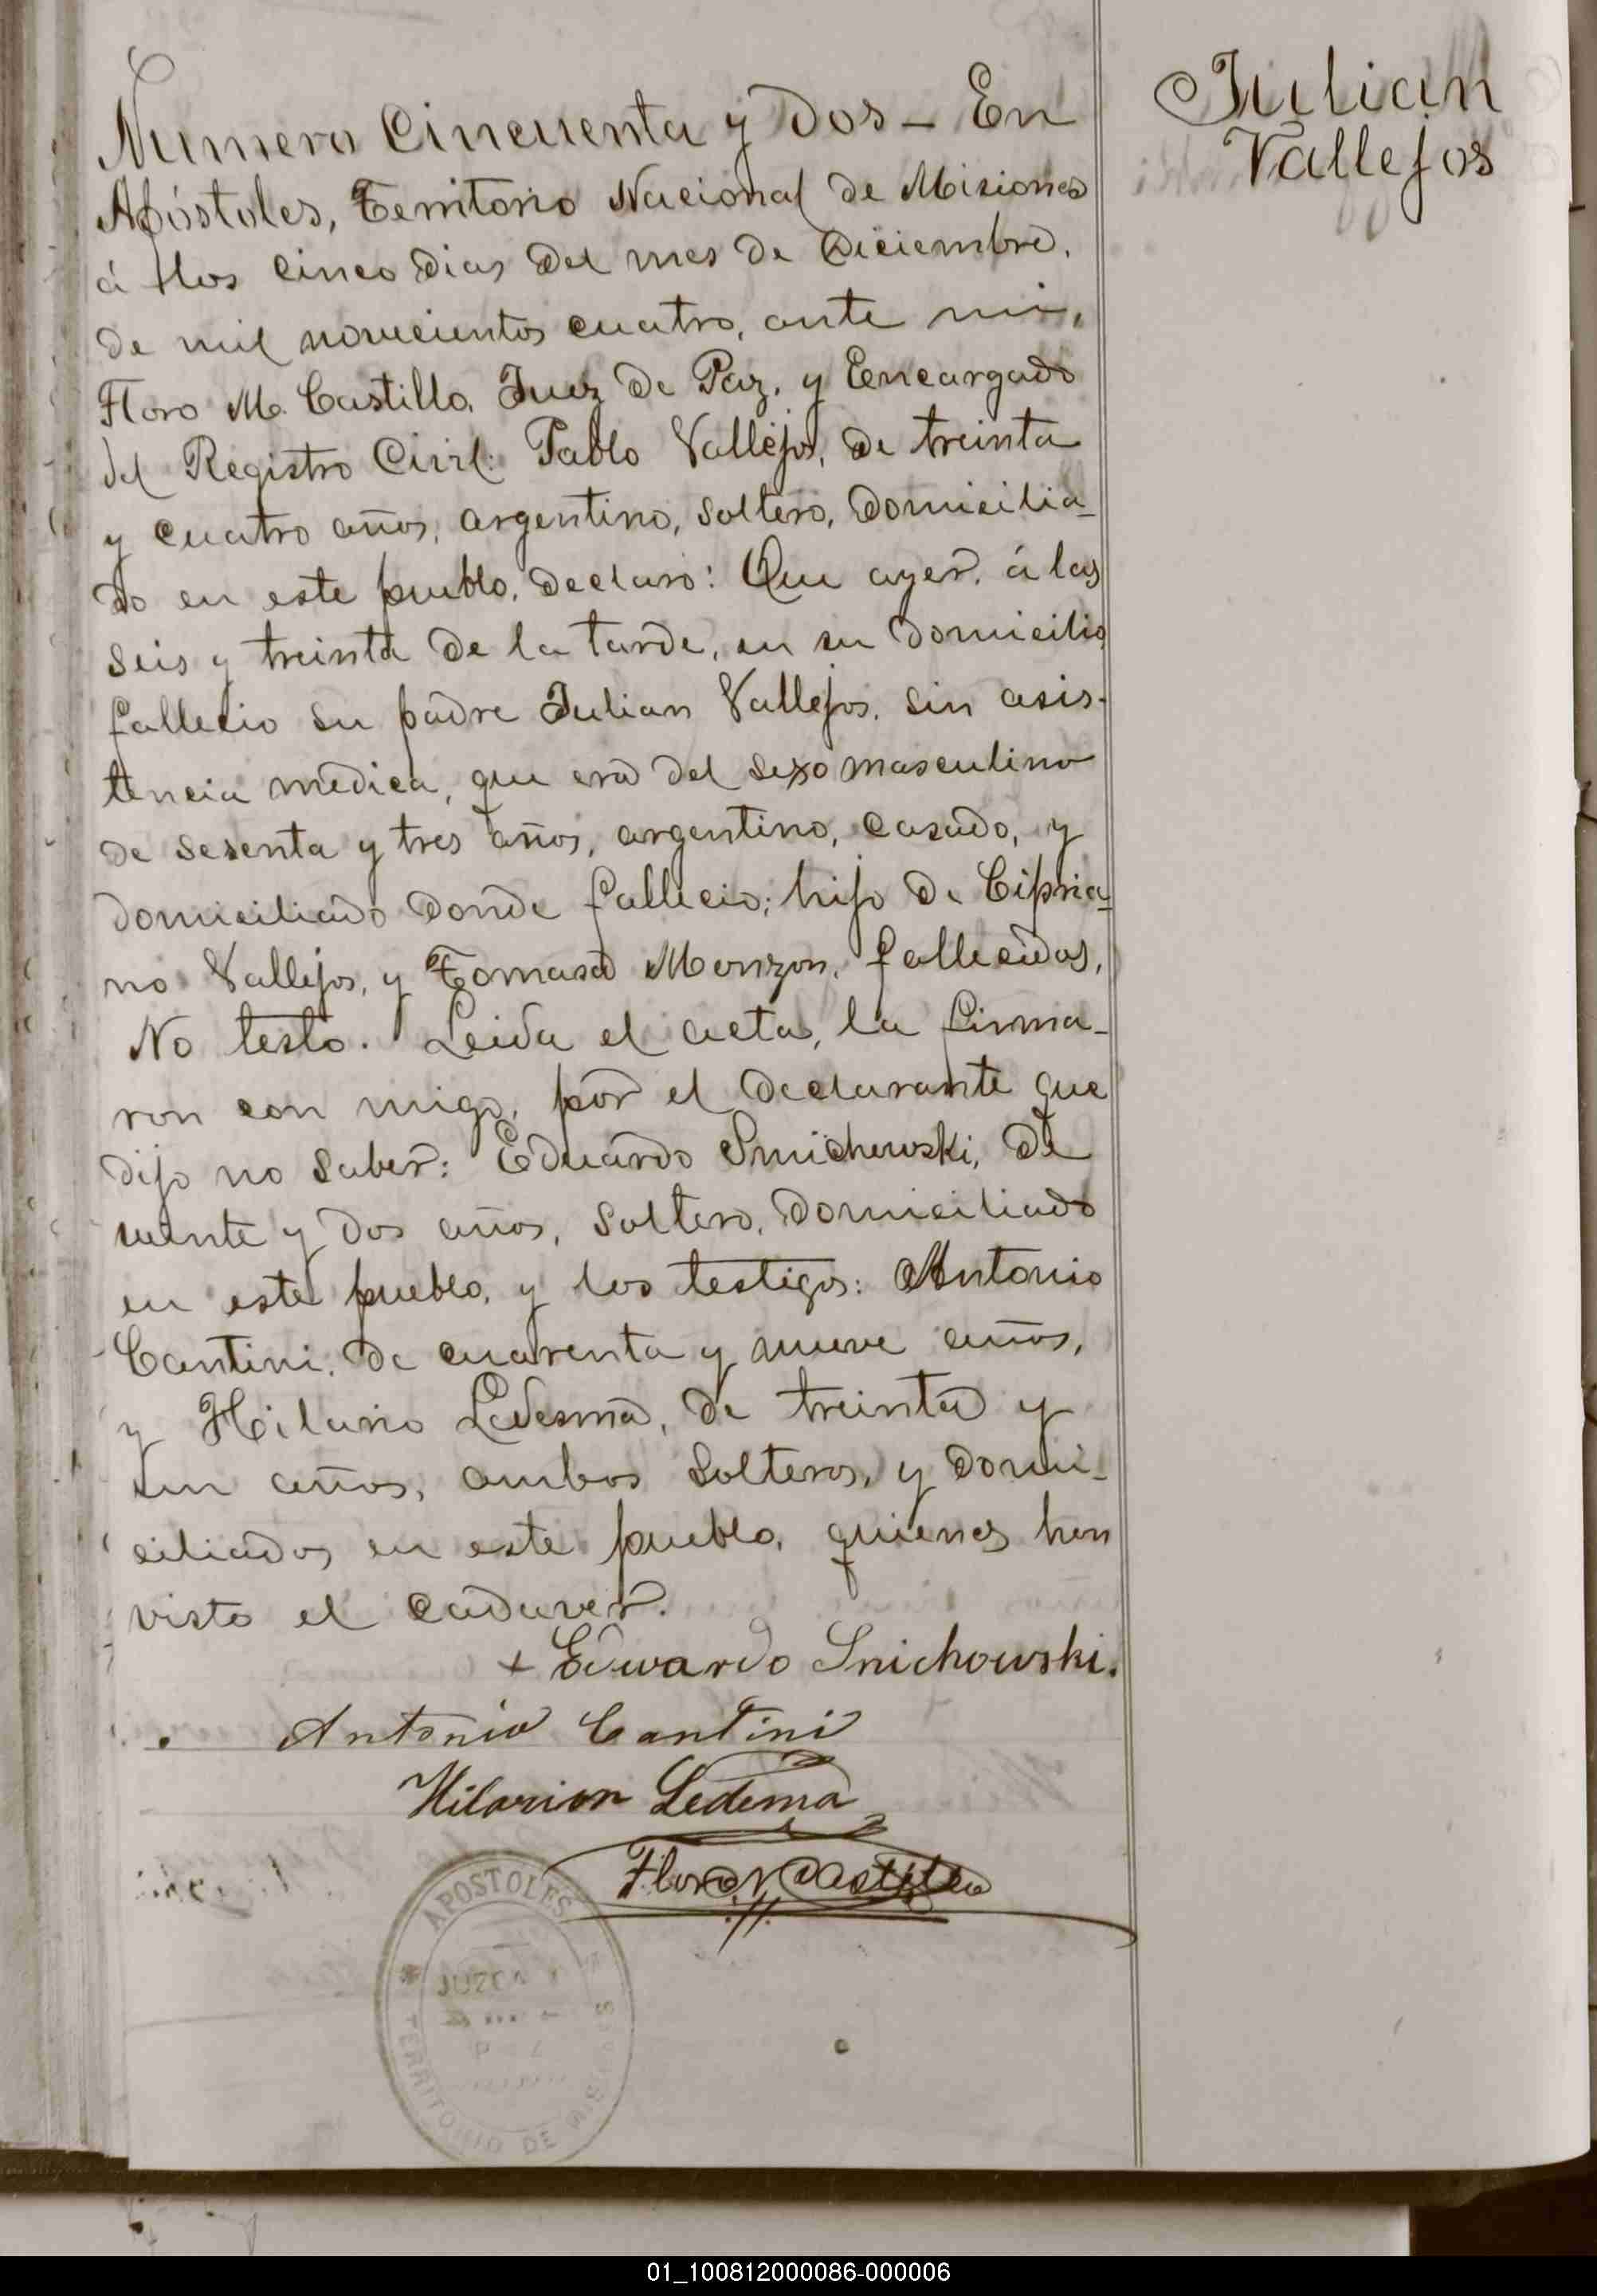 Julian
Vallejos
Numero Cincuenta y Dos - En
Apóstoles, Territorio Nacional de Misiones
á los cinco dias del mes de Diciembre,
de mil novecientos cuatro, ante mi,
Floro M. Castillo, Juez de Paz, y Encargado
del Registro Civil: Pablo Vallejos, de treinta
y cuatro años, argentino, soltero, domicilia-
do en este pueblo, declaró: Que ayer, á las
seis y treinta de la tarde, en su domicilio
fallecio su padre Julian Vallejos, sin asis-
tencia medica, que era del sexo masculino
de sesenta y tres años, argentino, casado, y
domiciliado donde fallecio; hijo de Cipria-
no Vallejos, y Tomasa Monzon, fallecidos,
No testo. Leida el acta, la firma-
ron con migo, por el declarante que
dijo no saber: Eduardo Snichowski, de
veinte y dos años, soltero, domiciliado
en este pueblo, y los testigos: Antonio
Cantini, de cuarenta y nueve años,
y Hilario Ledesma, de treinta y
un años, ambos solteros, y domi-
ciliados en este pueblo, quienes han
visto el cadaver.
+ Edwardo Snichowski.
Antonio Cantini
Hilarion Ledema
Floro M Castillo
APOSTOLES
JUZGA
TERRITORIO DE MISIONES
01_100812000086-000006